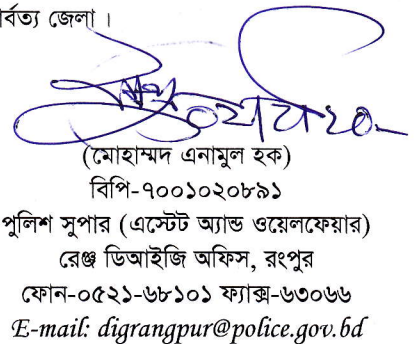 র্বত্য জেলা ।
(মোহাম্মদ এনামুল হক)
বিপি-৭০০১০২০৮৯১
পুলিশ সুপার (এস্টেট অ্যান্ড ওয়েলফেয়ার)
রেঞ্জ ডিআইজি অফিস, রংপুর
ফোন-০৫২১-৬৮১০১ ফ্যাক্স-৬৩০৬৬
E-mail: digrangpur@police.gov.bd